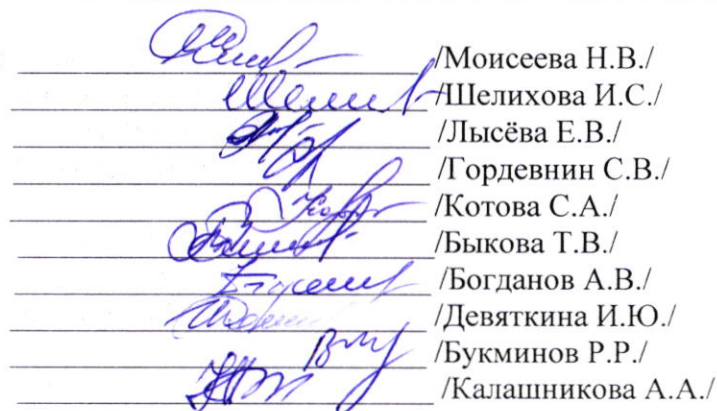 /Моисеева Н.В./
/Шелихова И.С./
/Лысёва Е.В./
/Гордевнин С.В./
/Котова С.А./
/Быкова Т.В./
/Богданов А.В./
/Девяткина И.Ю./
/Букминов Р.Р./
/Калашникова А.А./